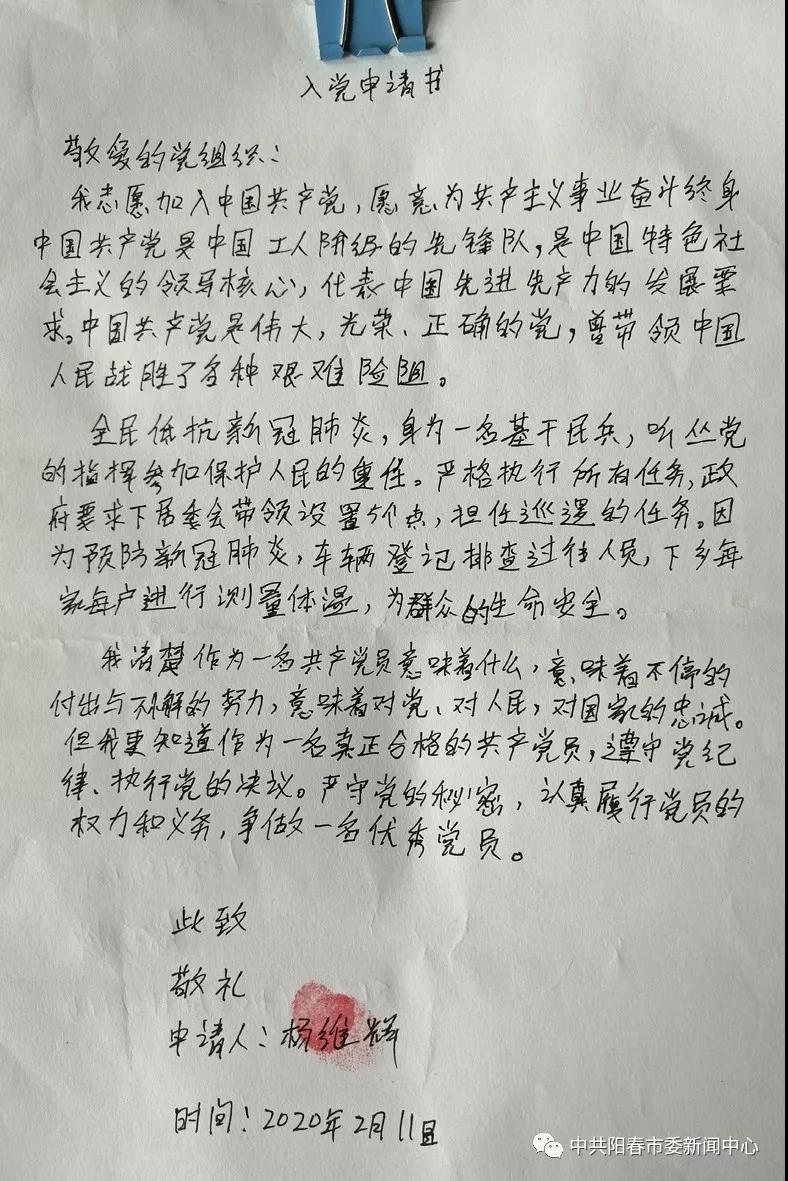 入党申请书
敬爱的党组织：
我志愿加入中国共产党，愿意为共产主义事业奋斗终身
中国共产党是中国工人阶级的先锋队，是中国特色社
会主义的领导核心，代表中国先进生产力的发展要
求。中国共产党是伟大，光荣、正确的党，曾带领中国
人民战胜了各种艰难险阻。
全民低抗新冠肺炎，身为一名基干民兵，听丛党
的指挥参加保护人民的重任。严格执行所有任务，政
府要求下居委会带领设置5个点，担任巡逻的任务。因
为预防新冠肺炎，车辆登记排查过往人员，下乡每
家每户进行测量体温，为群众的生命安全。
我清楚作为一名共产党员意味着什么，意味着不停的
付出与不懈的努力，意味着对党、对人民，对国家的忠诚。
但我更知道作为一名真正合格的共产党员，遵守党纪
律、执行党的决议。严守党的秘密，认真履行党员的
权力和义务，争做一名优秀党员。
此致
敬礼
申请人：杨维辉
时间：2020年2月11日
中共阳春市委新闻中心